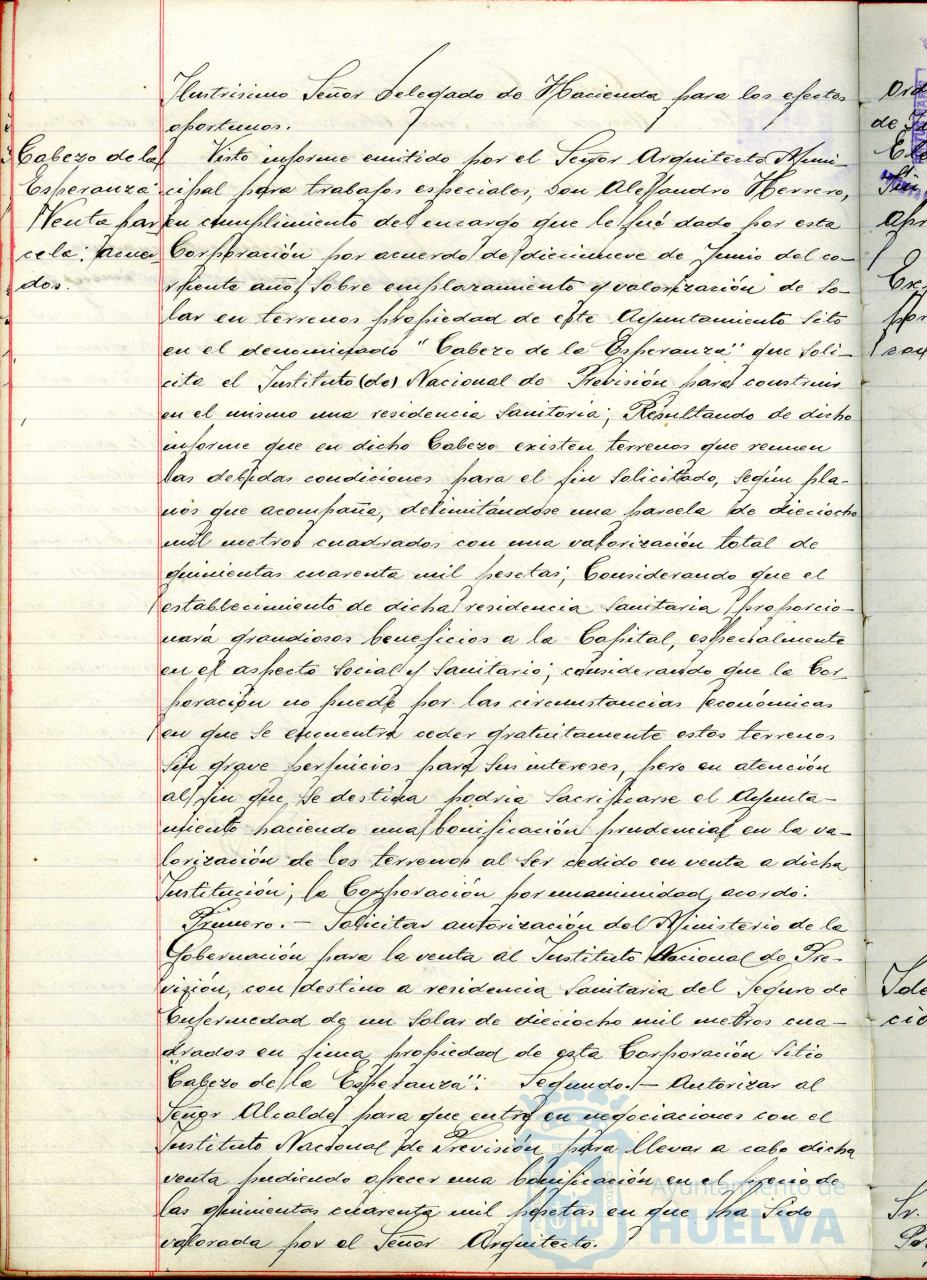 Ilustrisimo Señor Delegado de Hacienda para los efectos
oportunos.
Cabezo de la
Esperanza:
Venta par
cela; acuer-
dos.
Visto informe emitido por el Señor Arquitecto Muni-
cipal para trabajos especiales, Don Alejandro Herrero,
en cumplimiento del encargo que le fué dado por esta
Corporación por acuerdo de diecinueve de Junio del co-
rriente año, sobre emplazamiento y valorización de so-
lar en terrenos propiedad de este Ayuntamiento sito
en el denominado "Cabezo de la Esperanza" que soli-
cita el Instituto (de) Nacional de Previsión para construir
en el mismo una residencia Sanitaria; Resultando de dicho
informe que en dicho Cabezo existen terrenos que reunen
las debidas condiciones para el fin solicitado, según pla-
nos que acompaña, delimitándose una parcela de dieciocho
mil metros cuadrados con una valorización total de
quinientas cuarenta mil pesetas; Considerando que el
establecimiento de dicha residencia sanitaria proporcio-
nará grandiosos beneficios a la Capital, especialmente
en el aspecto Social y Sanitario; considerando que la Cor-
poración no puede por las circunstancias económicas
en que se encuentra ceder gratuitamente estos terrenos
sin grave perjuicios para sus intereses, pero en atención
al fin que se destina podria sacrificarse el Ayunta-
miento haciendo una bonificación prudencial en la va-
lorización de los terrenos al ser cedido en venta a dicha
Institución; la Corporación por unanimidad, acordo:
Primero.- Solicitar autorización del Ministerio de la
Gobernación para la venta al Instituto Nacional de Pre-
vizión, con destino a residencia Sanitaria del Seguro de
Enfermedad de un Solar de dieciocho mil metros cua-
drados en finca propiedad de esta Corporación Sitio
"Cabezo de la Esperanza". Segundo.- Autorizar al
Señor Alcalde para que entre en negociaciones con el
Instituto Nacional de Previsión para llevar a cabo dicha
venta pudiendo ofrecer una bonificación en el precio de
las quinientas cuarenta mil pesetas en que ha Sido
valorada por el Señor Arquitecto.
Ayuntamiento de
HUELVA